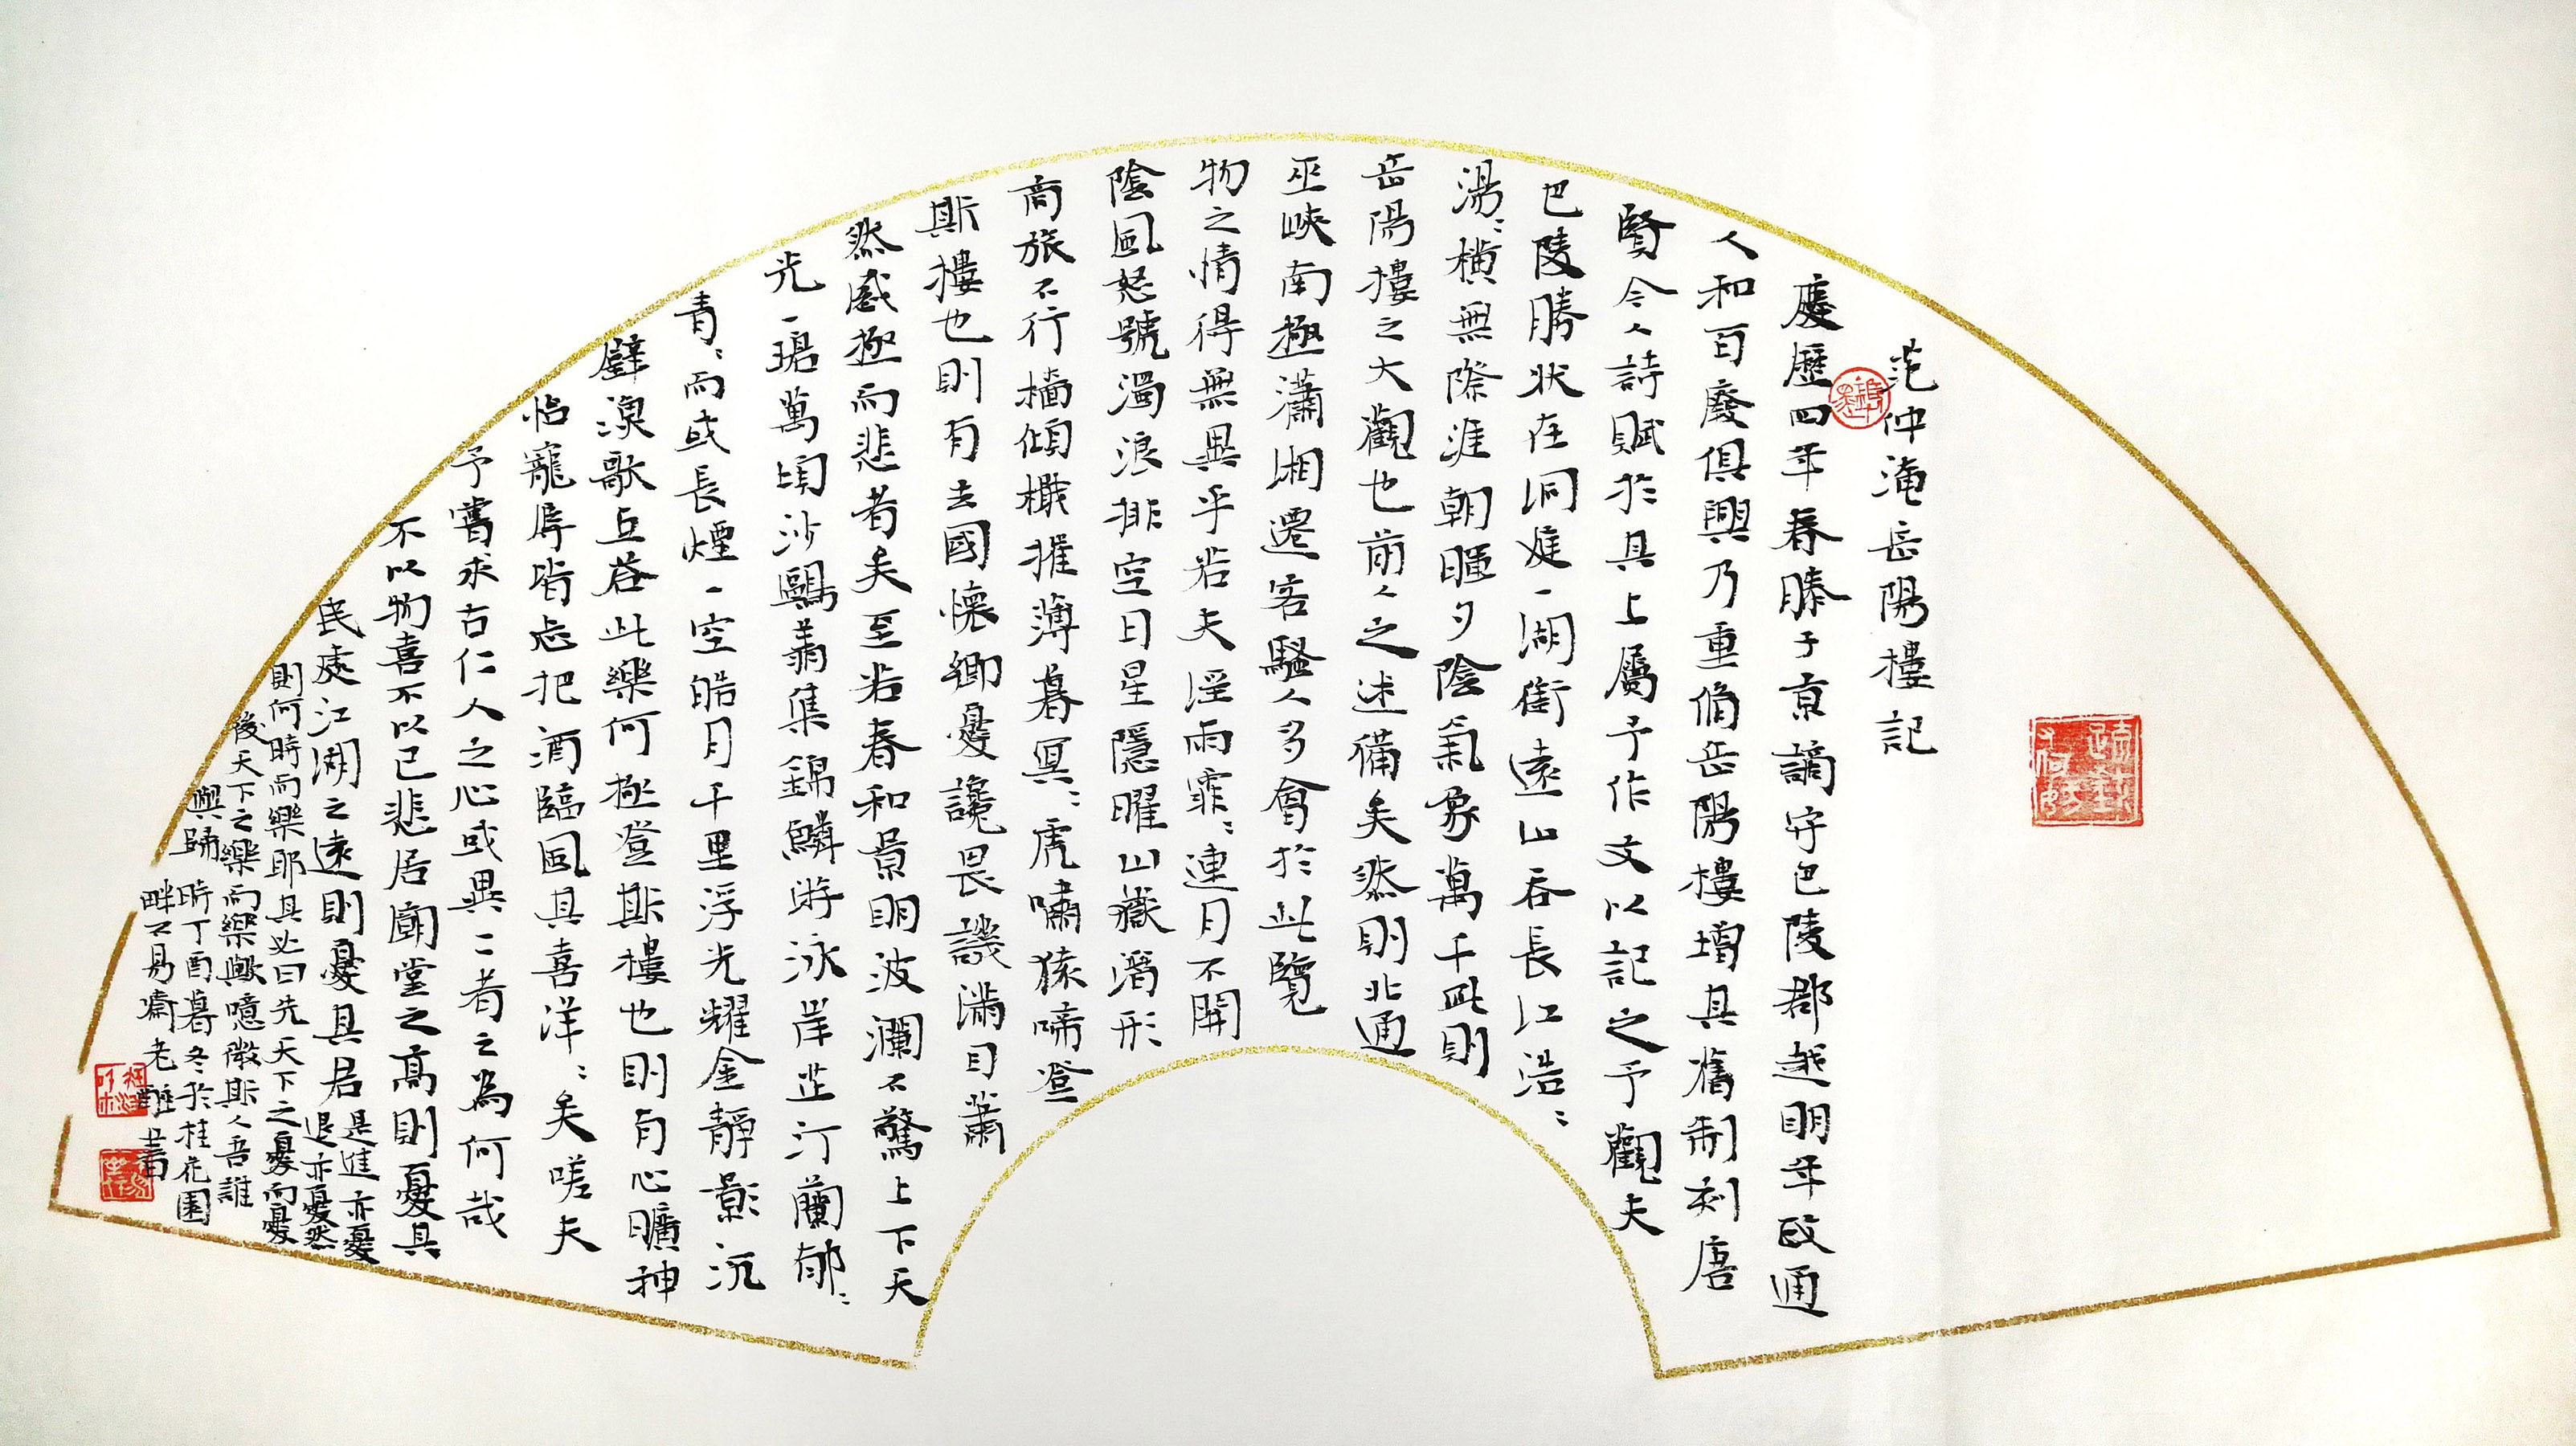 范仲淹岳陽樓記
慶歷四年春滕子京謫守巴陵郡越明年政通
人和百廢俱興乃重脩岳陽樓增其舊制刻唐
賢今人詩賦於其上屬予作文以記之予觀夫
巴陵勝狀在洞庭一湖銜遠山吞長江浩:
湯:橫無際涯朝暉夕陰氣象萬千此則
岳陽樓之大觀也前人之述備矣然則北通
巫峽南極瀟湘遷客騷人多會於此覽
物之情得無異乎若夫淫雨霏:連月不開
陰風怒號濁浪排空日星隱曜山嶽潛形
商旅不行檣傾檝摧薄暮冥:虎嘯猿啼登
斯樓也則有去國懷鄉憂讒畏譏滿目蕭
然感極而悲者矣至若春和景明波瀾不驚上下天
光一碧萬頃沙鷗翔集錦鱗游泳岸芷汀蘭郁:
青:而或長煙一空皓月千里浮光耀金靜影沉
璧漁歌互答此樂何極登斯樓也則有心曠神
怡寵辱皆忘把酒臨風其喜洋:矣嗟夫
予嘗求古仁人之心或異二者之為何哉
不以物喜不以己悲居廟堂之高則憂其
民處江湖之遠則憂其君是進亦憂
退亦憂然
則何時而樂耶其必曰先天下之憂而憂
後天下之樂而樂歟噫微斯人吾誰
與歸 時丁酉暮冬於桂花園
畔不易齋老書